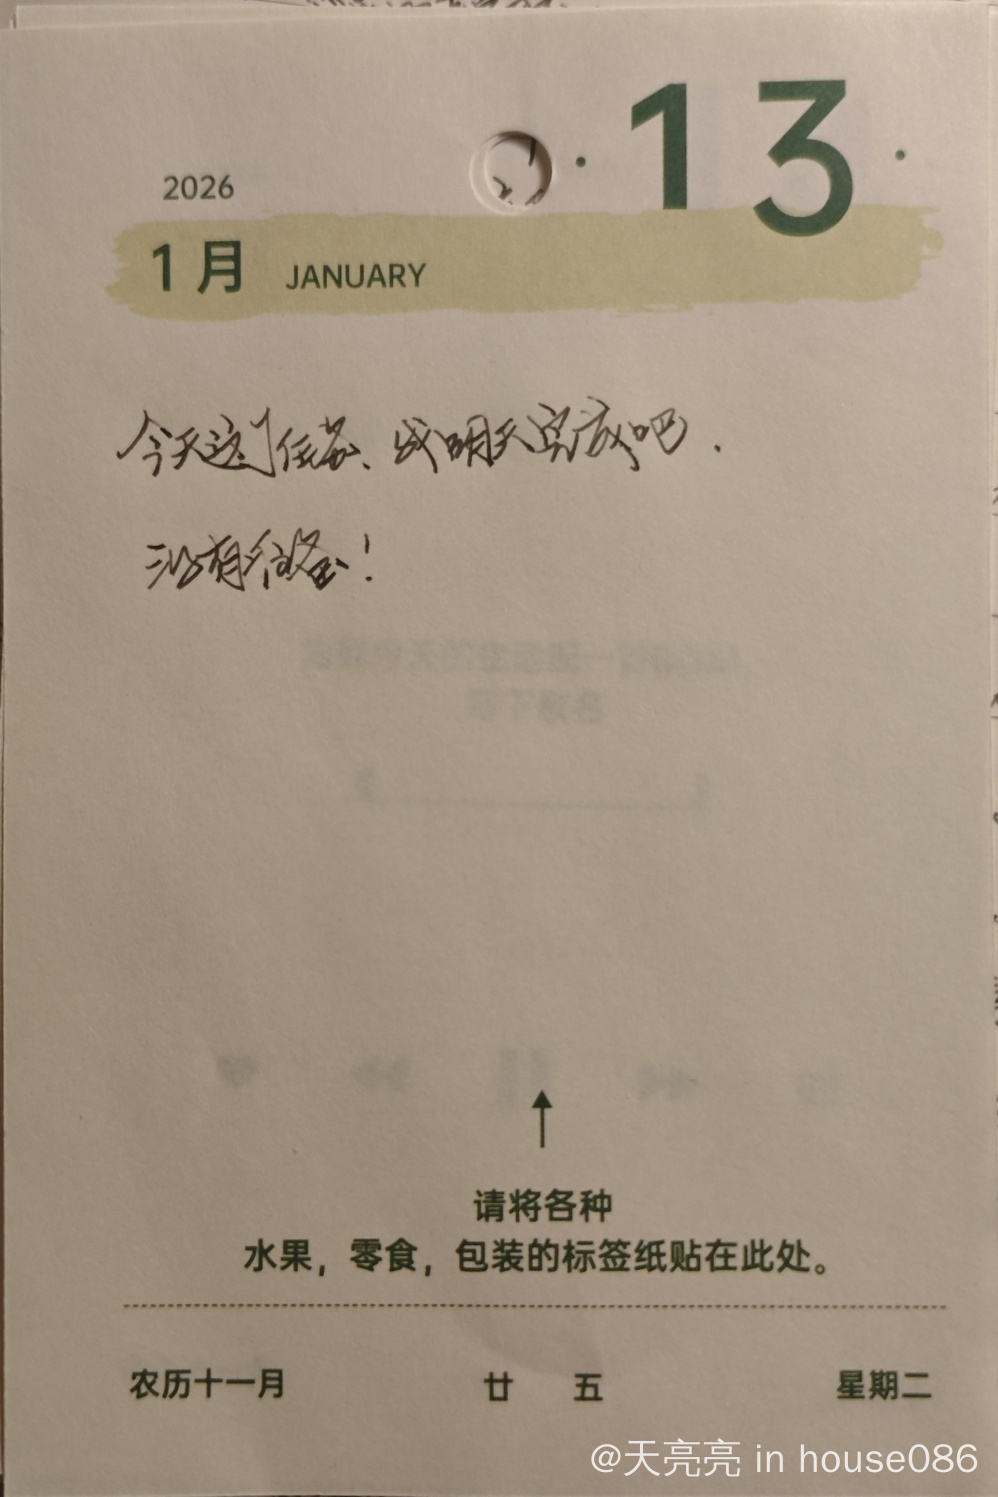 2026
· 13 ·
1月 JANUARY
今天这个任务、我明天完成吧.
没有准备！
请将各种
水果，零食，包装的标签纸贴在此处。
农历十一月 廿五 星期二
@天亮亮 in house086